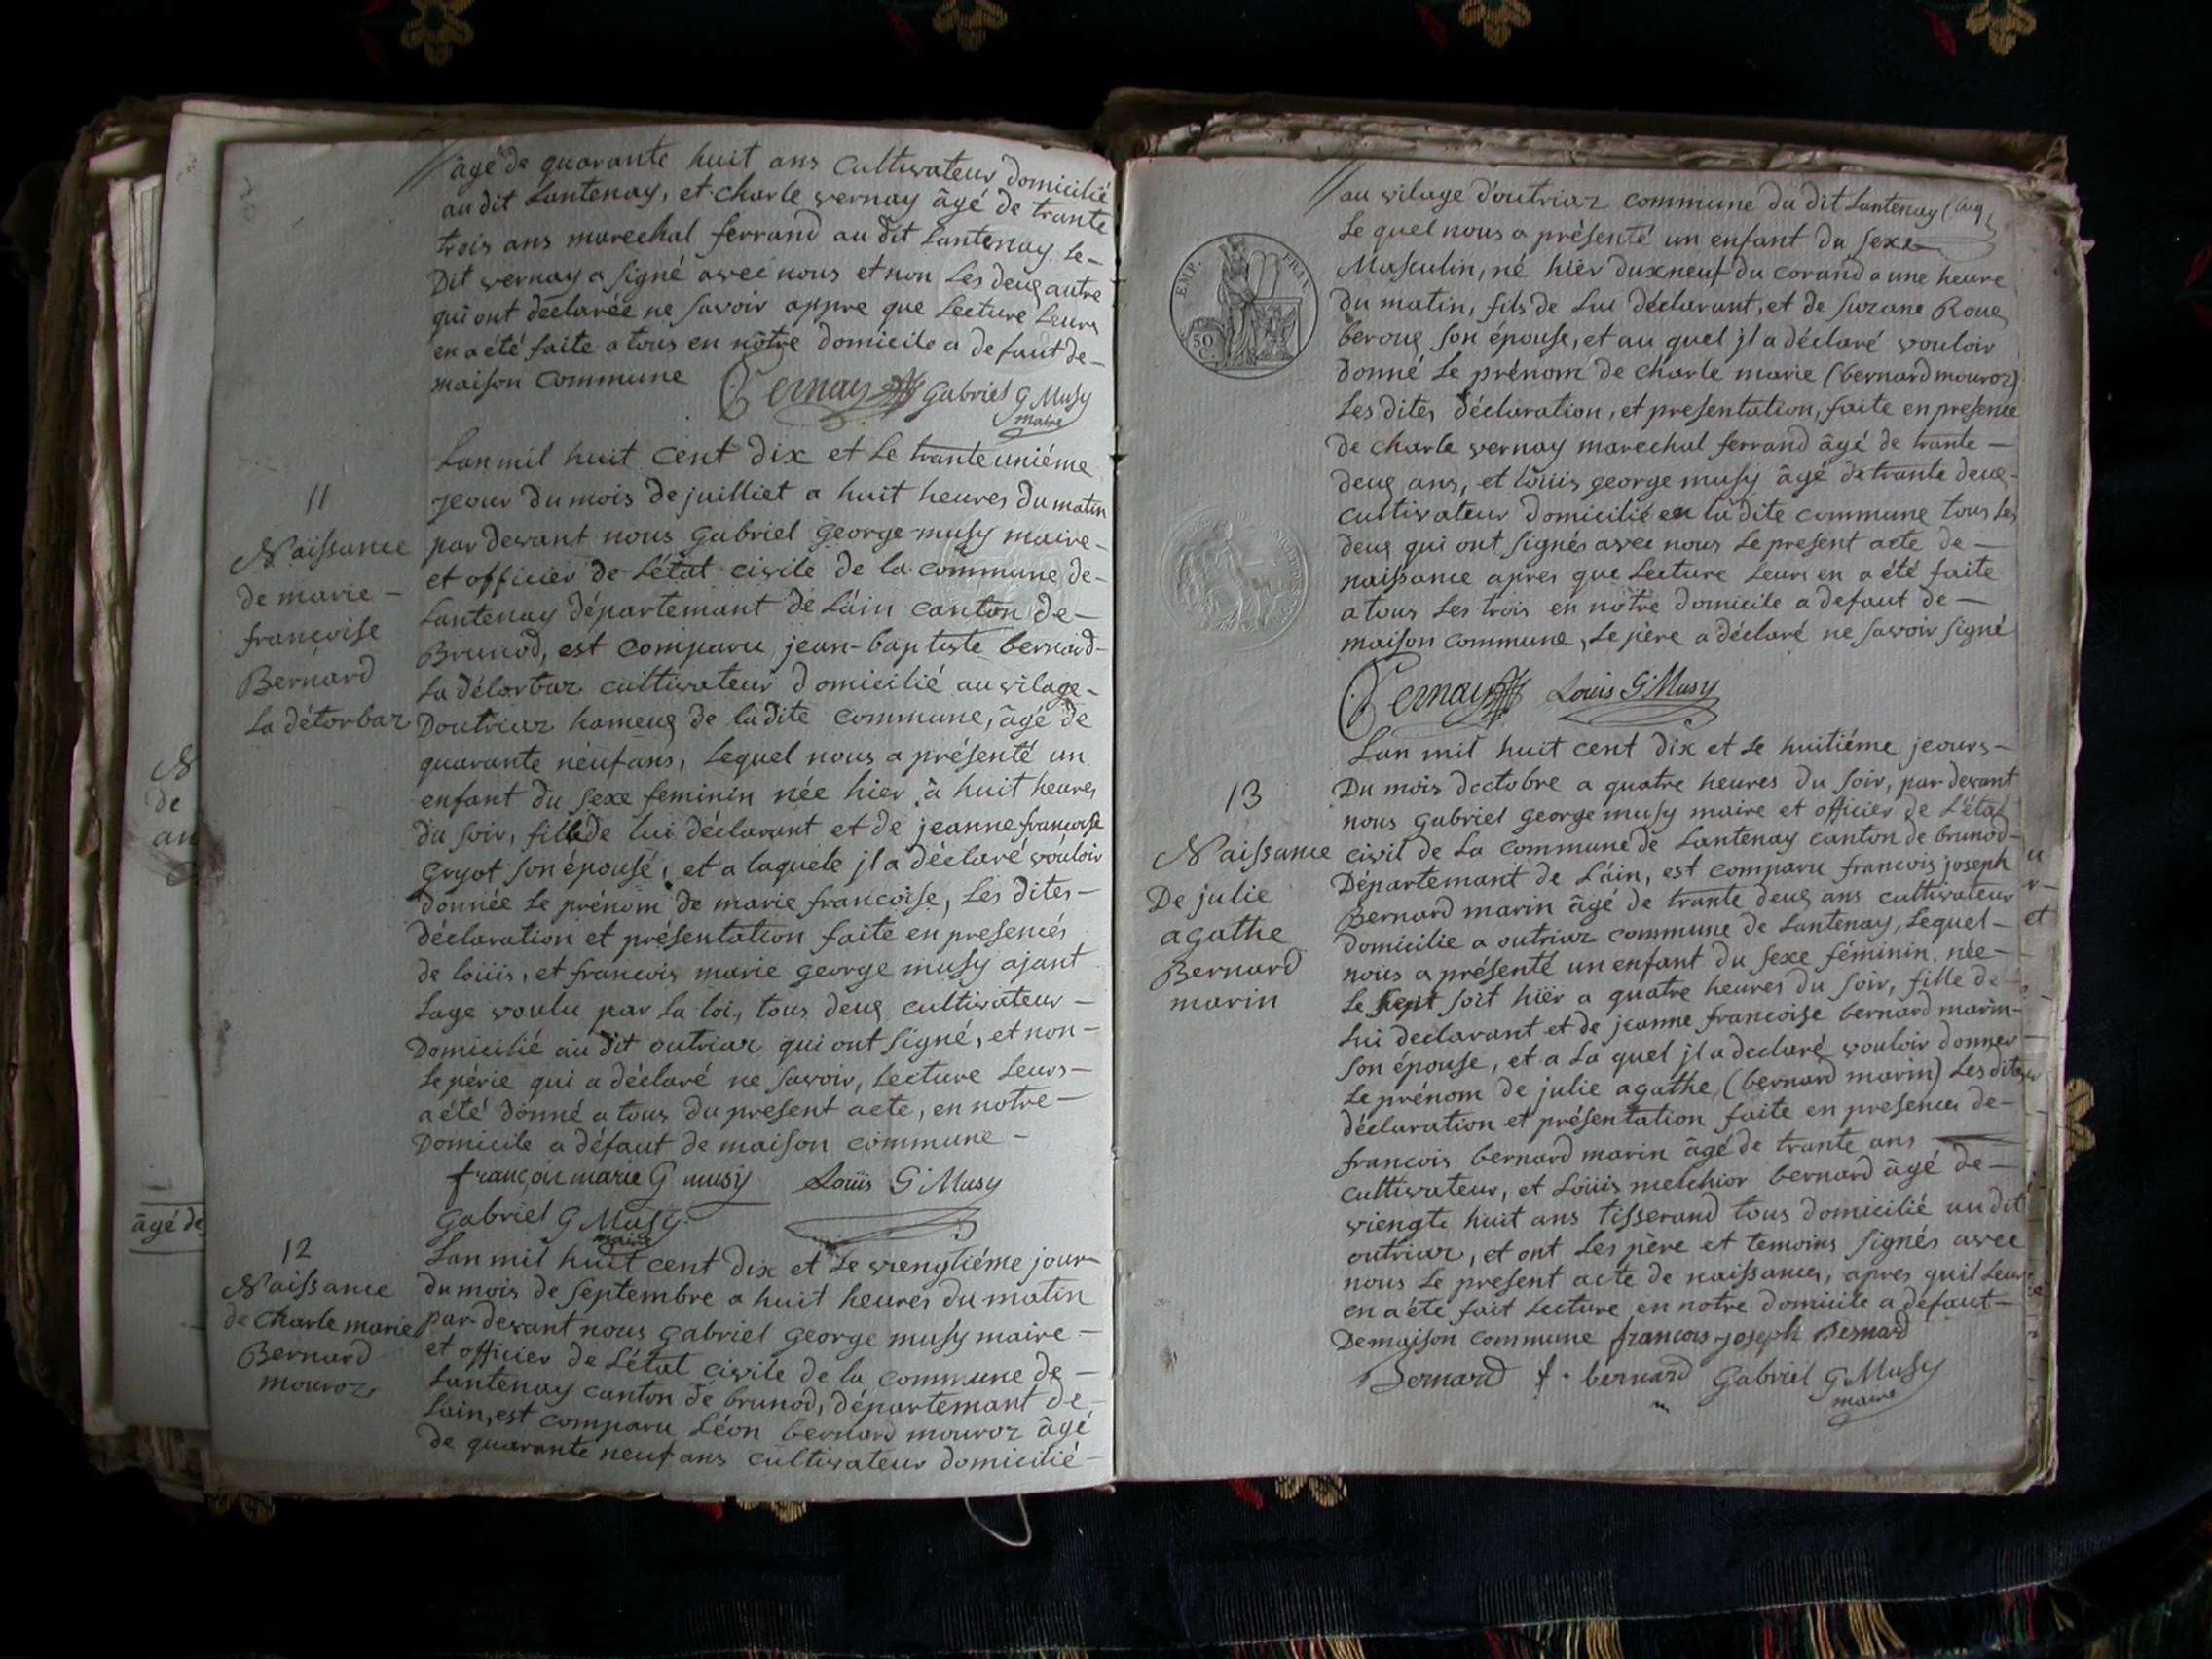 âgé de quarante huit ans cultivateur domicilié
au dit Lantenay, et charle vernay âgé de trante
trois ans marechal ferrand au dit Lantenay. Le-
Dit vernay a signé avec nous et non Les deux autre
qui ont déclarée ne savoir appre que Lecture Leurs
en a été faite a tous en nôtre domicile a defaut de-
maison commune
Vernay Gabriel G Musy
maire
11
Naissance
de marie-
francoise
Bernard
La détorbaz
Lan mil huit cent dix et Le trante uniéme
jeour du mois de juilliet a huit heures du matin
par devant nous gabriel george musy maire-
et officier de L'état civile de la commune de-
Lantenay départemant de L'äin canton de-
Brunod, est comparu jean-baptiste bernard-
La détorbaz cultivateur domicilié au vilage-
Doutriaz hameux de ladite commune, âgé de
quarante neuf ans, Lequel nous a présenté un
enfant du sexe feminin née hier à huit heures
du soir, fille de lui déclarant et de jeanne francoise
gryot son épouse, et a laquele jl a déclaré vouloir
donnée Le prénom de marie francoise, Les dites-
déclaration et présentation faite en presencés
de loüis, et francois marie george musy ajant
Lage voulu par La loi, tous deux cultivateur-
Domicilié au dit outriaz qui ont signé, et non-
Le pérre qui a déclaré ne savoir, Lecture Leurs-
a été donné a tous du present acte, en notre-
Domicile a défaut de maison commune-
françois marie G musy Louïs G Musy
Gabriel G Musy
maire
12
Naissance
de Charle marie
Bernard
mouroz
Lan mil huit cent dix et Le viengtiéme jour
du mois de septembre a huit heures du matin
par-devant nous gabriel george musy maire-
et officier de L'état civile de la commune de-
Lantenay canton de brunod, départemant de
Lain, est comparu Léon bernard mouroz âgé
de quarante neuf ans cultivateur domicilié-
N
de
an
âgé de
au vilage d'outriaz commune du dit Lantenay
Le quel nous a présenté un enfant du sexe
Masculin, né hiér dux neuf du corand a une heure
du matin, fils de Lui déclarant, et de suzane Roux
beroux son épouse, et au quel jl a déclaré vouloir
donné Le prénom de charle marie (bernard mouroz)
Les dites déclaration, et presentation, faite en presence
de charle vernay marechal ferrand âgé de trante-
deux ans, et loüis george musy âgé de trante deux-
cultivateur domicilié en la dite commune tous Les
deux qui ont signés avec nous Le present acte de-
naissance apres que Lecture Leurs en a été faite
a tous Les trois en nôtre domicile a defaut de-
maison commune, Le père a déclaré ne savoir signé
Vernay Louis G Musy
EMP. FRAN.
50
C.
13
Naissance
De julie
agathe
Bernard
marin
Lan mil huit cent dix et Le huitiéme jeours-
Du mois doctobre a quatre heures du soir, par-devant
nous gabriel george musy maire et officier de L'état
civil de La commune de Lantenay canton de brunod-
Département de L'äin, est comparu francois joseph
Bernard marin âgé de trante deux ans cultivateur
domicilie a outriaz commune de Lantenay, Lequel-
nous a présenté un enfant du sexe féminin. née-
Le sept soit hiër a quatre heures du soir, fille de-
Lui declarant et de jeanne francoise bernard marin-
son épouse, et a La quel jl a declaré vouloir donner
Le prénom de julie agathe, (bernard marin) Les dites
déclaration et présentation faite en presences de-
francois bernard marin âgé de trante ans
cultivateur, et Loüis melchior bernard âgé de-
viengte huit ans tisserand tous domicilié au dit
outriaz, et ont Les père et temoins signés avec
nous Le present acte de naissances, apres quil Leurs
en a été fait Lecture en notre domicile a defaut-
De maison commune francois joseph Bernard
Bernard f. bernard Gabriel G Musy
maire
et